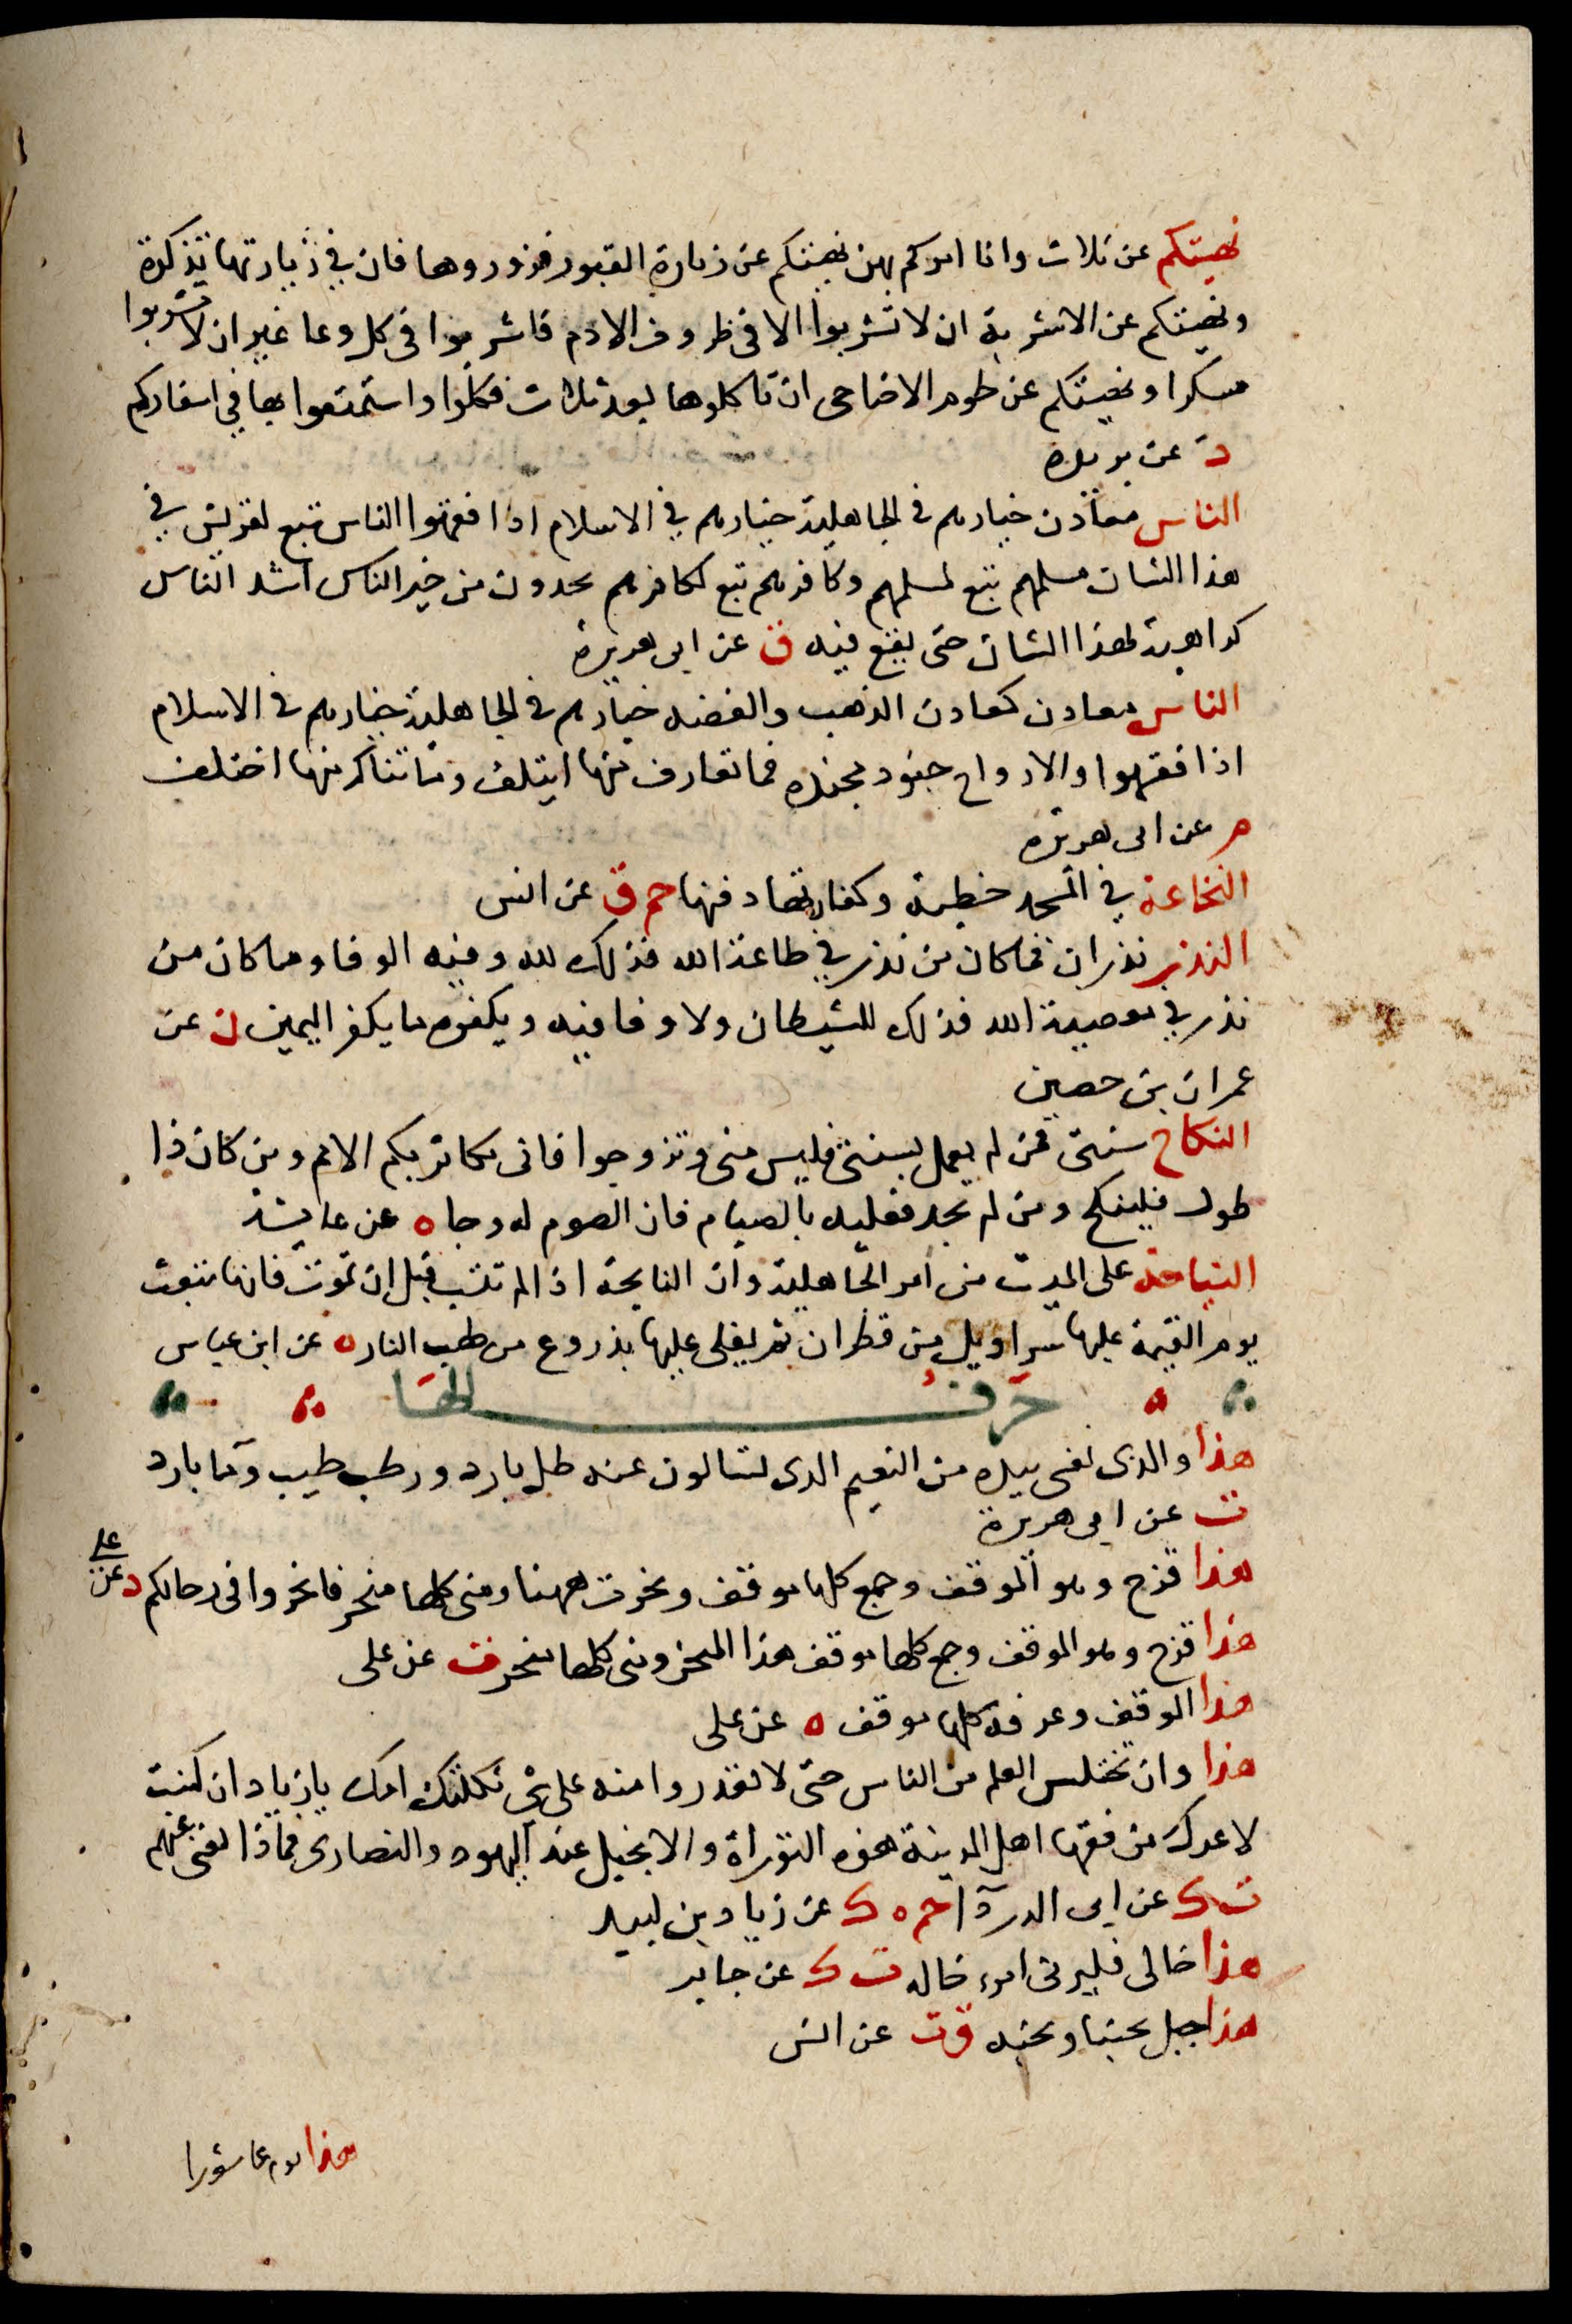 نهيتكم عن ثلاث وانا امركم بهن نهيتكم عن زيارة القبور فزوروها فان في زيارتها تذكرة
ونهيتكم عن الاشربة ان لا تشربوا الا في ظروف الادم فاشربوا في كل وعا غير ان لا تشربوا
مسكرا ونهيتكم عن لحوم الاضاحى ان تاكلوها بعد ثلاث فكلوا واستمتعوا بها في اسفاركم
د عن بريدة
الناس معادن خيارهم في الجاهلية خيارهم في الاسلام اذا فقهوا الناس تبع لقريش في
هذا الشان مسلمهم تبع لمسلمهم وكافرهم تبع لكافرهم تجدون من خير الناس اشد الناس
كراهية لهذا الشان حتى يقع فيه ق عن ابى هريرة
الناس معادن كمعادن الذهب والفضه خيارهم في الجاهلية خيارهم في الاسلام
اذا فقهوا والارواح جنود مجنده فما تعارف منها ايتلف وما تناكر منها اختلف
م عن ابى هريره
النخاعة في المسجد خطيئة وكفارتها دفنها حم ق عن انس
النذر نذران فما كان من نذر في طاعة الله فذلك لله وفيه الوفا وما كان من
نذر في معصية الله فذلك للشيطان ولا وفا فيه ويكفره ما يكفر اليمين ن عن
عمران بن حصين
النكاح سنتى فمن لم يعمل بسنتى فليس منى وتزوجوا فانى مكاثر بكم الامم ومن كان ذا
طول فلينكح ومن لم يجد فعليه بالصيام فان الصوم له وجا ه عن عايشة
النياحة على الميت من امر الجاهلية وان النايحة اذا لم تتب قبل ان تموت فانها تبعث
يوم القيمة عليها سراويل من قطران ثم يغلى عليها بدروع من لهب النار ه عن ابن عباس
حرف الها
هذا والذى نفسى بيده من النعيم الذى تسالون عنه ظل بارد ورطب طيب وما بارد
ت عن ابى هريرة
هذا قزح وهو الموقف وجمع كلها موقف ونحرت ههنا ومنى كلها منحر فانحروا فى رحالكم د عن على
هذا قزح وهو الموقف وجمع كلها موقف هذا المنحر ومنى كلها منحر ت عن على
هذا الموقف وعرفة كلها موقف ه عن على
هذا اوان يختلس العلم من الناس حتى لا يقدروا منه على شى ثكلتك امك يا زياد ان كنت
لاعدك من فقها اهل المدينة هذه التوراة والانجيل عند اليهود والنصارى فماذا يغنى عنهم
ت ك عن ابى الدردآ حم ه ك عن زياد بن لبيد
هذا خالى فليرنى امرء خاله ت ك عن جابر
هذا جبل يحبنا ونحبه ق ت عن انس
هذا يوم عاشورا